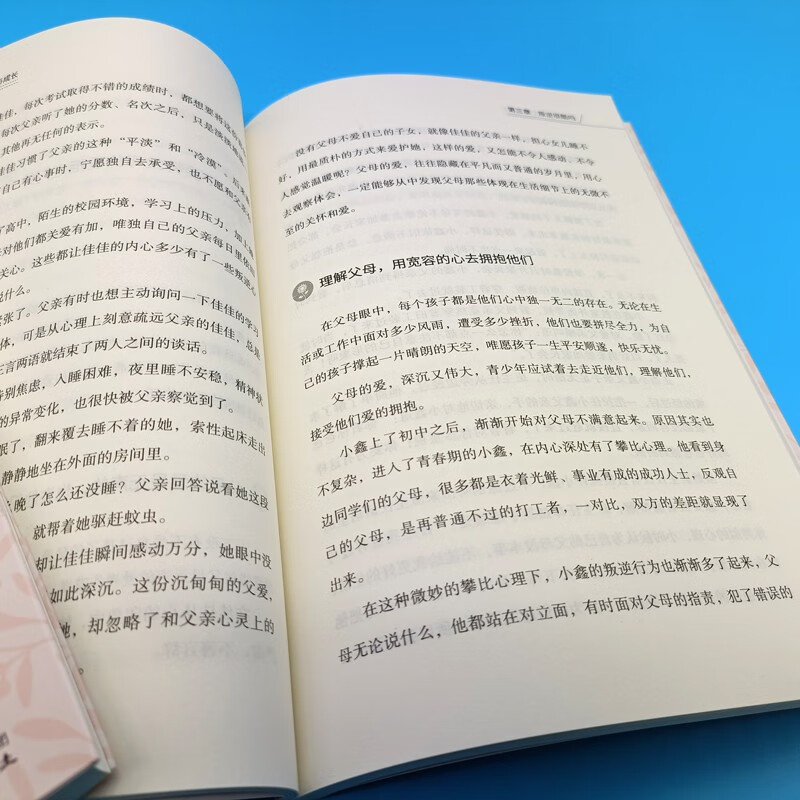 成长
佳，每次考试取得不错的成绩时，都想要将这份
每次父亲听了她的分数、名次之后，只是淡淡
其他再无任何的表示。
佳习惯了父亲的这种“平淡”和“冷漠”，后来
自己有心事时，宁愿独自去承受，也不愿和父
了高中，陌生的校园环境，学习上的压力，加上
对他们都关爱有加，唯独自己的父亲每日里依
关心。这些都让佳佳的内心多少有了一些叛逆心
说什么。
紧张了。父亲有时也想主动询问一下佳佳的学习
体，可是从心理上刻意疏远父亲的佳佳，总是
三言两语就结束了两人之间的谈话。
特别焦虑，入睡困难，夜里睡不安稳，精神状
的异常变化，也很快被父亲察觉到了。
眠了，翻来覆去睡不着的她，索性起床走出
静静地坐在外面的房间里。
晚了怎么还没睡？父亲回答说看她这段
就帮着她驱赶蚊虫。
却让佳佳瞬间感动万分，她眼中没
如此深沉。这份沉甸甸的父爱，
她，却忽略了和父亲心灵上的
。
第三章
没有父母不爱自己的子女。就像佳佳的父亲一样，担心女儿睡不
好，用最质朴的方式来爱护她，这样的爱，又怎能不令人感动、不令
人感觉温暖呢？父母的爱，往往隐藏在平凡而又普通的岁月里，用心
去观察体会，一定能够从中发现父母那些体现在生活细节上的无微不
至的关怀和爱。
理解父母，用宽容的心去拥抱他们
在父母眼中，每个孩子都是他们心中独一无二的存在。无论在生
活或工作中面对多少风雨，遭受多少挫折，他们也要拼尽全力，为自
己的孩子撑起一片晴朗的天空，唯愿孩子一生平安顺遂，快乐无忧。
父母的爱，深沉又伟大，青少年应试着去走近他们，理解他们，
接受他们爱的拥抱。
小鑫上了初中之后，渐渐开始对父母不满意起来。原因其实也
不复杂，进入了青春期的小鑫，在内心深处有了攀比心理。他看到身
边同学们的父母，很多都是衣着光鲜、事业有成的成功人士，反观自
己的父母，是再普通不过的打工者，一对比，双方的差距就显现了
出来。
在这种微妙的攀比心理下，小鑫的叛逆行为也渐渐多了起来，父
母无论说什么，他都站在对立面，有时面对父母的指责，犯了错误的